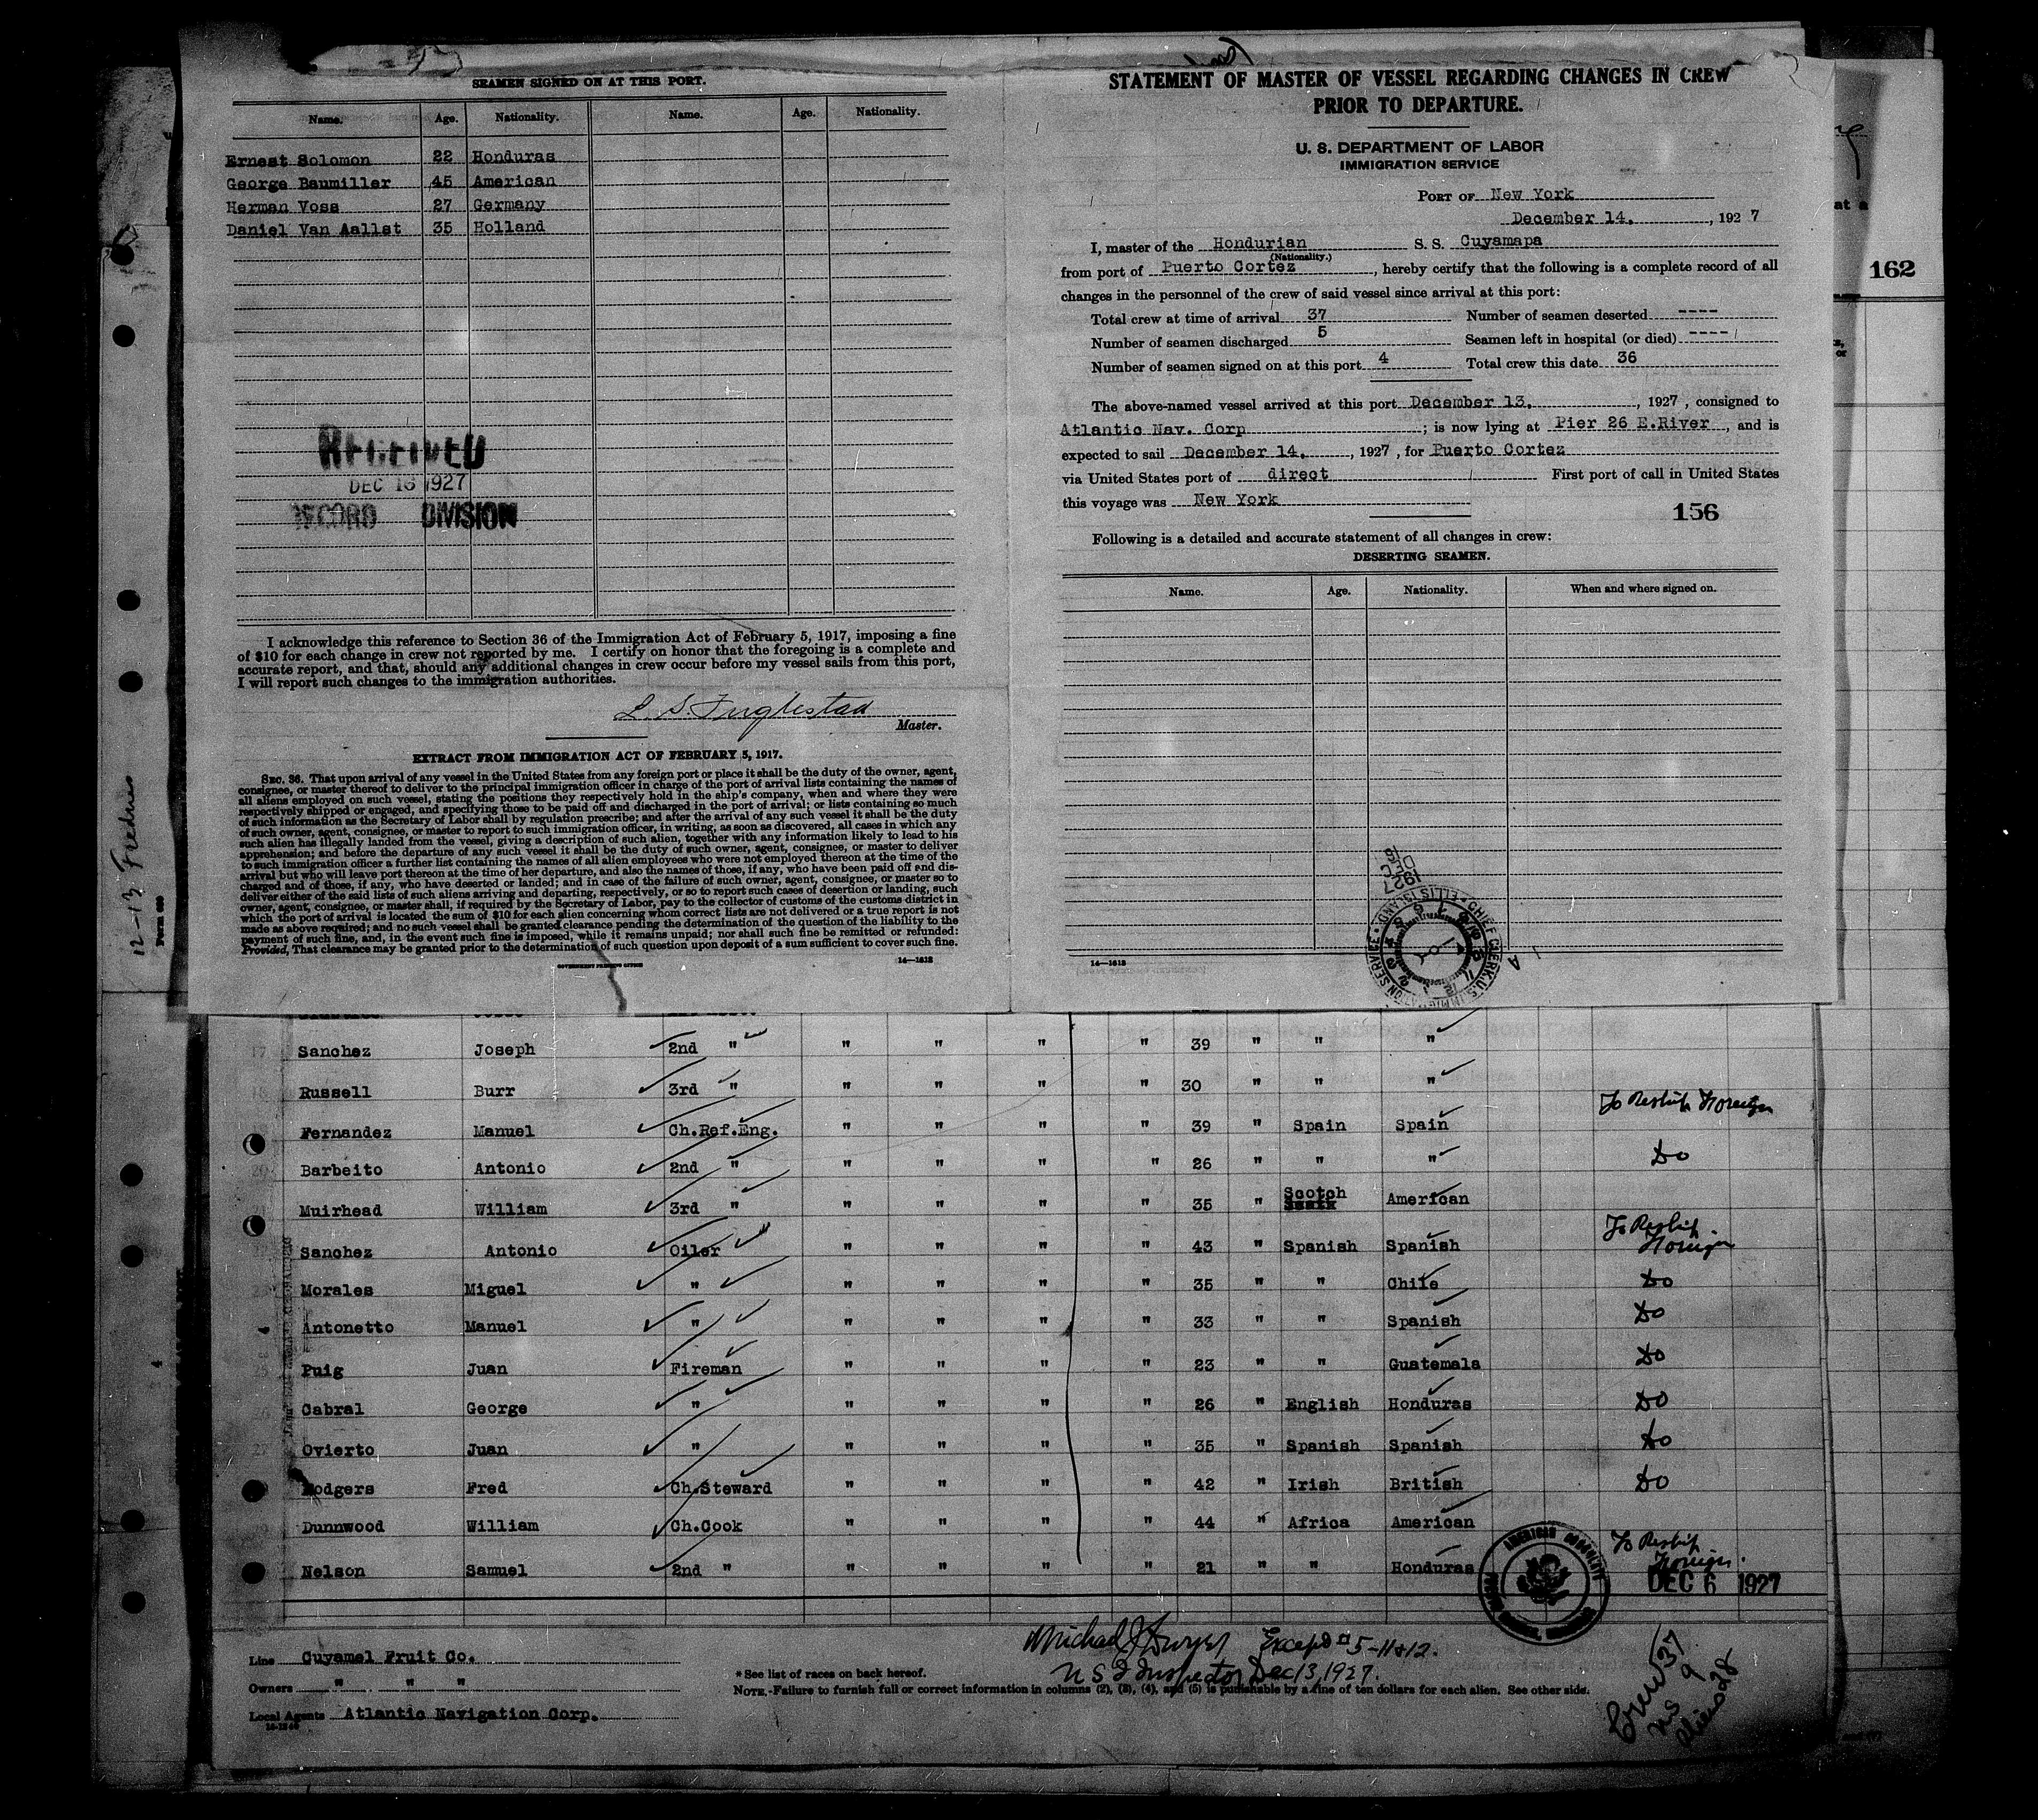 SEAMEN SIGNED ON AT THIS PORT.
Name. Age. Nationality. Name. Age. Nationality.
Ernest Solomon 22 Honduras
George Baumiller 45 American
Herman Voss 27 Germany
Daniel Van Aallst 35 Holland
RECEIVED
DEC 16 1927
RECORD DIVISION
I acknowledge this reference to Section 36 of the Immigration Act of February 5, 1917, imposing a fine
of $10 for each change in crew not reported by me. I certify on honor that the foregoing is a complete and
accurate report, and that, should any additional changes in crew occur before my vessel sails from this port,
I will report such changes to the immigration authorities.
Master.
EXTRACT FROM IMMIGRATION ACT OF FEBRUARY 5, 1917.
SEC. 36. That upon arrival of any vessel in the United States from any foreign port or place it shall be the duty of the owner, agent,
consignee, or master thereof to deliver to the principal immigration officer in charge of the port of arrival lists containing the names of
all aliens employed on such vessel, stating the positions they respectively hold in the ship's company, when and where they were
respectively shipped or engaged, and specifying those to be paid off and discharged in the port of arrival; or lists containing so much
of such information as the Secretary of Labor shall by regulation prescribe; and after the arrival of any such vessel it shall be the duty
of such owner, agent, consignee, or master to report to such immigration officer, in writing, as soon as discovered, all cases in which any
such alien has illegally landed from the vessel, giving a description of such alien, together with any information likely to lead to his
apprehension; and before the departure of any such vessel it shall be the duty of such owner, agent, consignee, or master to deliver
to such immigration officer a further list containing the names of all alien employees who were not employed thereon at the time of the
arrival but who will leave port thereon at the time of her departure, and also the names of those, if any, who have been paid off and dis-
charged and of those, if any, who have deserted or landed; and in case of the failure of such owner, agent, consignee, or master so to
deliver either of the said lists of such aliens arriving and departing, respectively, or so to report such cases of desertion or landing, such
owner, agent, consignee, or master shall, if required by the Secretary of Labor, pay to the collector of customs of the customs district in
which the port of arrival is located the sum of $10 for each alien concerning whom correct lists are not delivered or a true report is not
made as above required; and no such vessel shall be granted clearance pending the determination of the question of the liability to the
payment of such fine, and, in the event such fine is imposed, while it remains unpaid; nor shall such fine be remitted or refunded:
Provided, That clearance may be granted prior to the determination of such question upon deposit of a sum sufficient to cover such fine.
GOVERNMENT PRINTING OFFICE 14—1612
STATEMENT OF MASTER OF VESSEL REGARDING CHANGES IN CREW
PRIOR TO DEPARTURE.
U. S. DEPARTMENT OF LABOR
IMMIGRATION SERVICE
PORT OF New York
December 14, , 192 7
I, master of the Hondurian S. S. Cuyamapa
(Nationality.)
from port of Puerto Cortez , hereby certify that the following is a complete record of all
changes in the personnel of the crew of said vessel since arrival at this port:
Total crew at time of arrival 37 Number of seamen deserted ----
Number of seamen discharged 5 Seamen left in hospital (or died) ----
Number of seamen signed on at this port 4 Total crew this date 36
The above-named vessel arrived at this port December 13, , 1927 , consigned to
Atlantic Nav. Corp ; is now lying at Pier 26 E.River , and is
expected to sail December 14, , 1927 , for Puerto Cortez
via United States port of direct First port of call in United States
this voyage was New York
156
Following is a detailed and accurate statement of all changes in crew:
DESERTING SEAMEN.
Name. Age. Nationality. When and where signed on.
1927
CHIEF CLERK U.S. IMMIGRATION SERVICE ELLIS ISLAND
14—1612
162
at a
or
12-13
17 Sanchez Joseph 2nd " " " " " 39 " " "
18 Russell Burr 3rd " " " " " 30 " " "
Fernandez Manuel Ch.Ref.Eng. " " " " 39 " Spain Spain To Reship Foreign
20 Barbeito Antonio 2nd " " " " " 26 " " " Do
Muirhead William 3rd " " " " " 35 " Scotch American
Sanchez Antonio Oiler " " " " 43 " Spanish Spanish To Reship Foreign
Morales Miguel " " " " " 35 " " Chile Do
Antonetto Manuel " " " " " 33 " " Spanish Do
25 Puig Juan Fireman " " " " 23 " " Guatemala Do
26 Cabral George " " " " " 26 " English Honduras Do
27 Ovierto Juan " " " " " 35 " Spanish Spanish Do
Rodgers Fred Ch.Steward " " " " 42 " Irish British Do
Dunnwood William Ch.Cook " " " " 44 " Africa American
Nelson Samuel 2nd " " " " " 21 " " Honduras To Reship Foreign.
DEC 6 1927
AMERICAN CONSULATE
Line Cuyamel Fruit Co.
Owners " " "
Local Agents Atlantic Navigation Corp.
Michael J Dwyer Except # 5-11&12.
U S I Inspector Dec 13, 1927.
* See list of races on back hereof.
NOTE.-Failure to furnish full or correct information in columns (2), (3), (4), and (5) is punishable by a fine of ten dollars for each alien. See other side.
Crew 37
US 9
Aliens 28